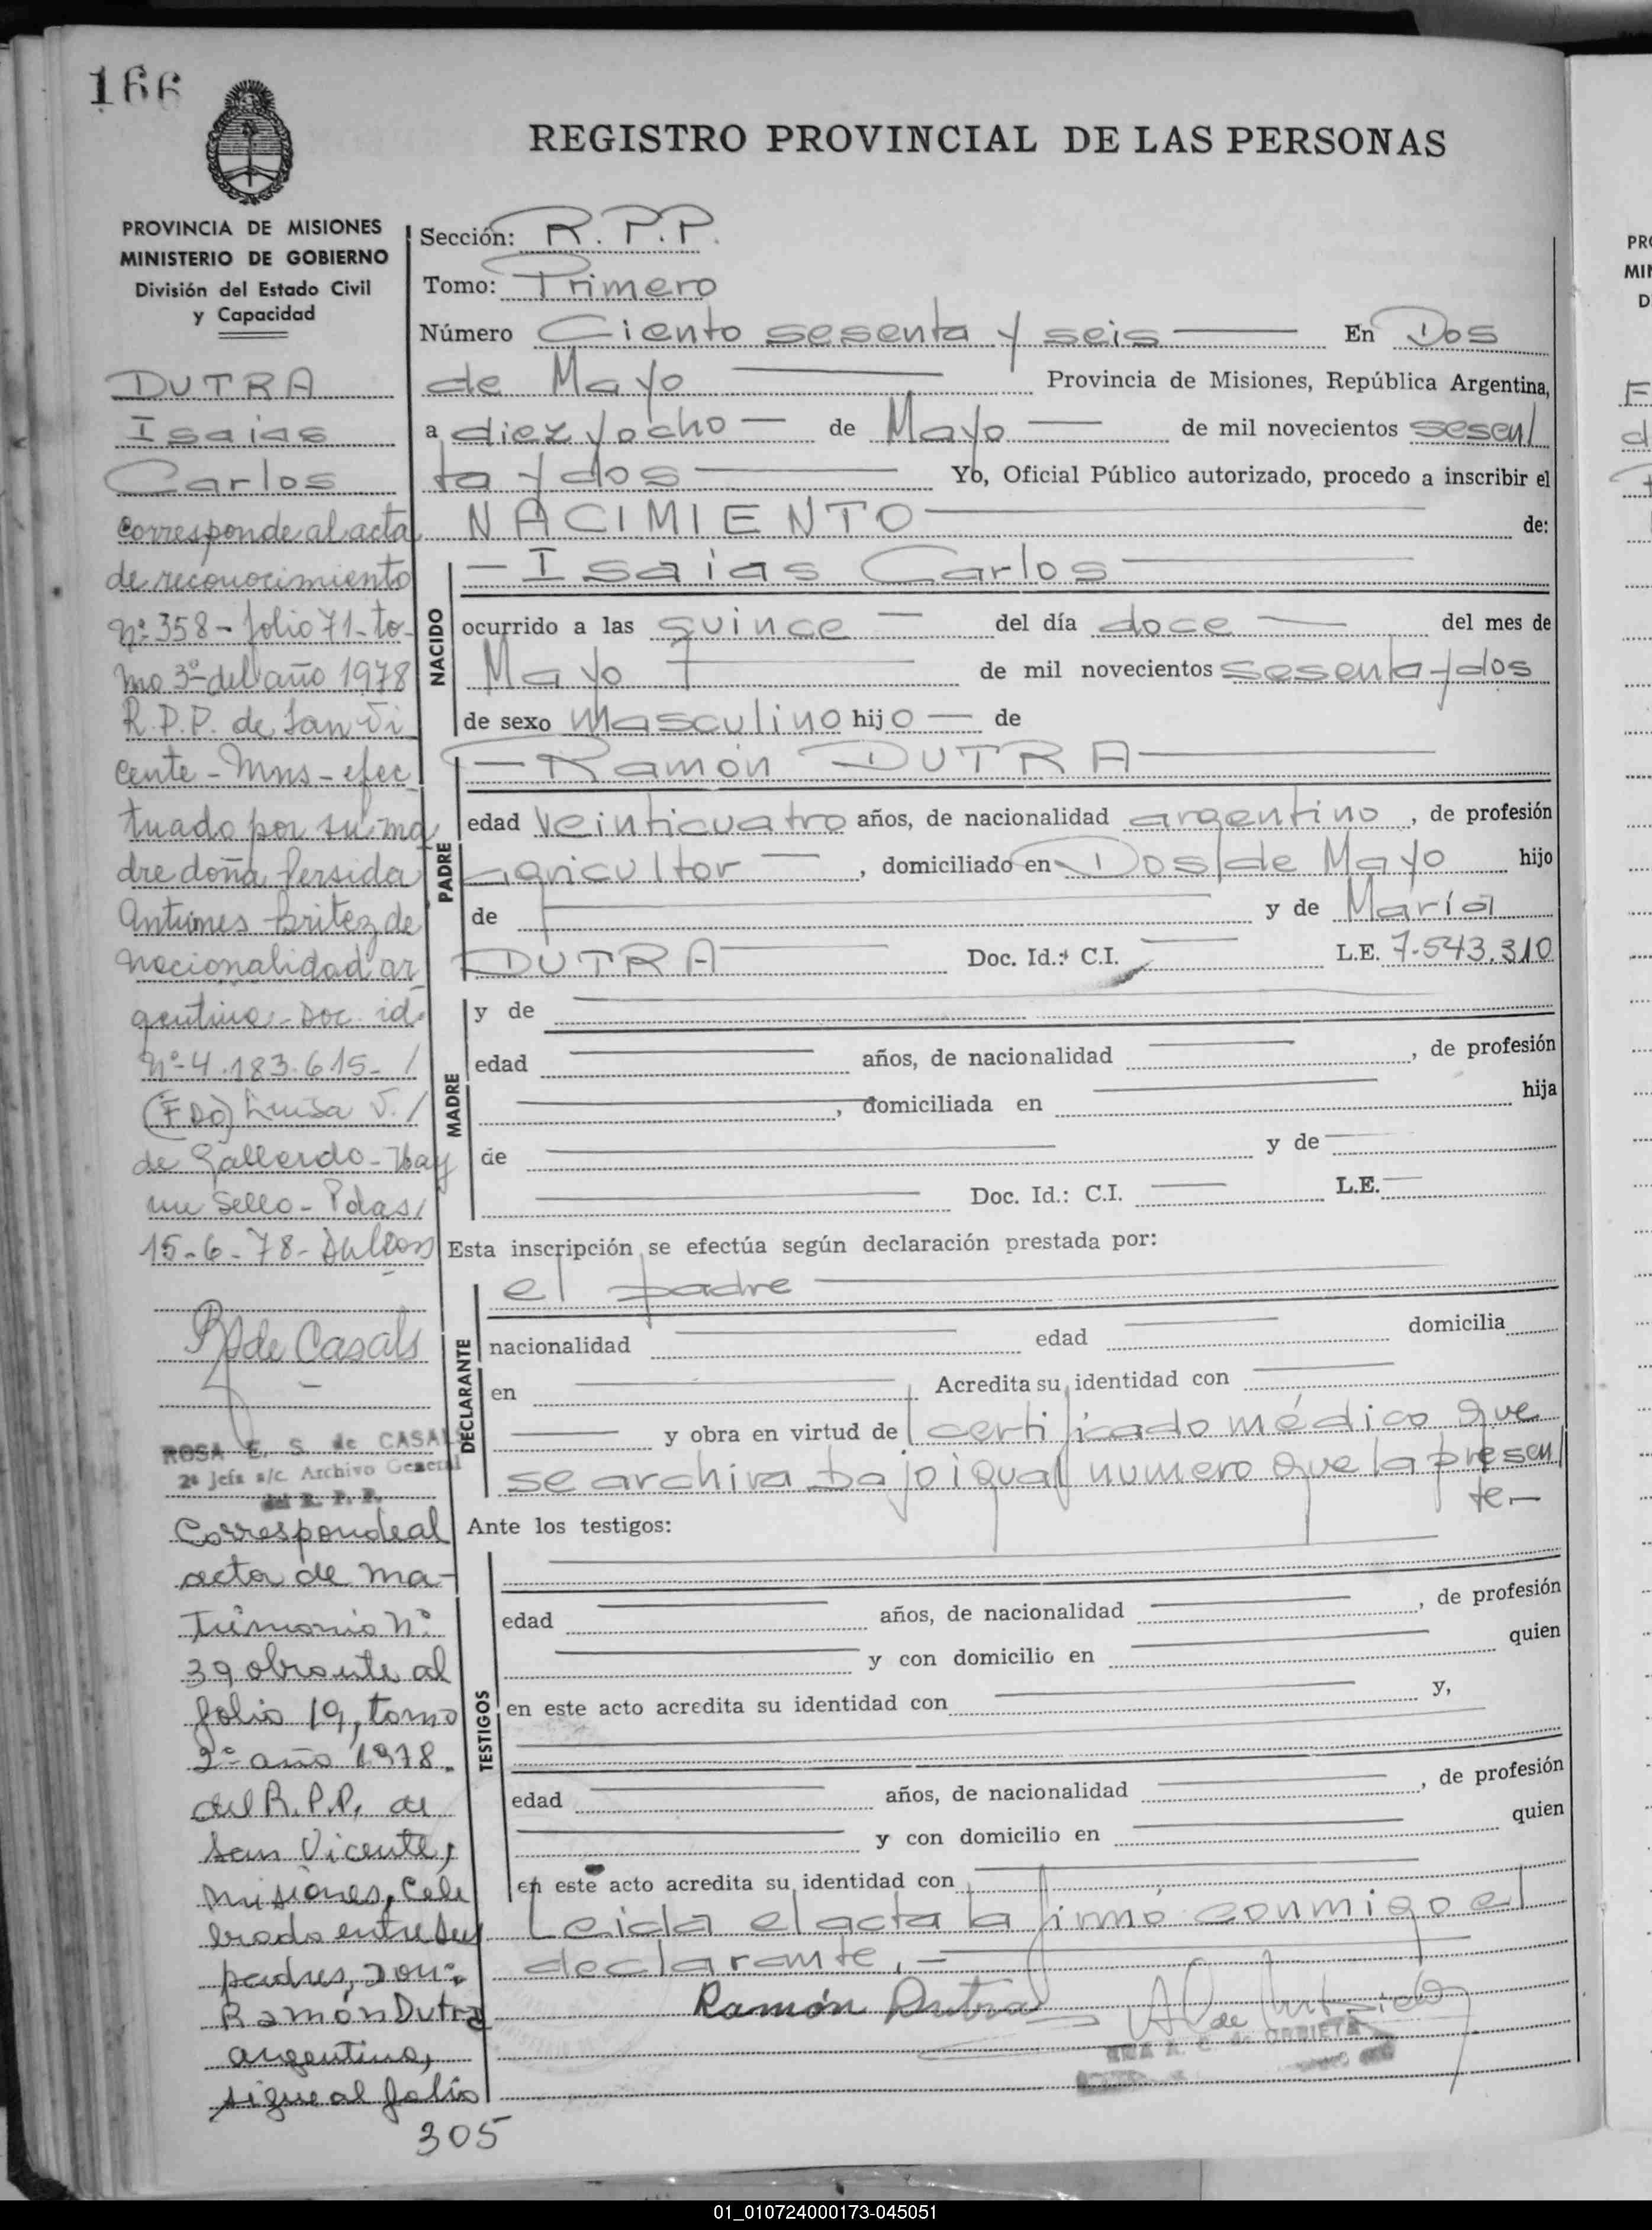 166
REGISTRO PROVINCIAL DE LAS PERSONAS
PROVINCIA DE MISIONES
MINISTERIO DE GOBIERNO
División del Estado Civil
y Capacidad
DUTRA
Isaias
Carlos
corresponde al acta
de reconocimiento
Nº 358 - folio 71 - to-
mo 3º del año 1978
R.P.P. de San Vi
cente - Mns - efec
tuado por su ma
dre doña Persida
Antunes Britez de
nacionalidad ar
gentina - Doc. id.
Nº 4.183.615 - /
(FDO) Luisa V. /
de Gallardo - Hay
un sello - Pdas/
15-6-78-
de Casals
ROSA E. S. de CASALS
2ª Jefa a/c. Archivo General
del R. P. P.
Corresponde al
acta de ma-
trimonio Nº
39 obrante al
folio 19, tomo
2º año 1978.
del R.P.P. de
San Vicente,
Misiones, Cele
brado entre sus
padres, Don:
Ramón Dutra
argentino,
sigue al folio
305
Sección: R.P.P.
Tomo: Primero
Número Ciento sesenta y seis En Dos
de Mayo Provincia de Misiones, República Argentina,
a diez y ocho de Mayo de mil novecientos sesen/
ta y dos Yo, Oficial Público autorizado, procedo a inscribir el
NACIMIENTO de:
NACIDO
Isaias Carlos
ocurrido a las quince del día doce del mes de
Mayo de mil novecientos sesenta y dos
de sexo masculino hijo de
PADRE
Ramón DUTRA
edad veinticuatro años, de nacionalidad argentino, de profesión
agricultor, domiciliado en Dos/de Mayo hijo
de y de María
DUTRA Doc. Id.: C.I. L.E. 7.543.310
MADRE
y de
edad años, de nacionalidad , de profesión
, domiciliada en hija
de y de
Doc. Id.: C.I. L.E.
Esta inscripción se efectúa según declaración prestada por:
DECLARANTE
el padre
nacionalidad edad domicilia
en Acredita su identidad con
y obra en virtud de certificado médico que
se archiva bajo igual numero que la presen/
te.-
Ante los testigos:
TESTIGOS
edad años, de nacionalidad , de profesión
y con domicilio en quien
en este acto acredita su identidad con y,
edad años, de nacionalidad , de profesión
y con domicilio en quien
en este acto acredita su identidad con
Leida el acta la firmó conmigo el
declarante.-
Ramón Dutra
A. C. de URBIETA
01_010724000173-045051